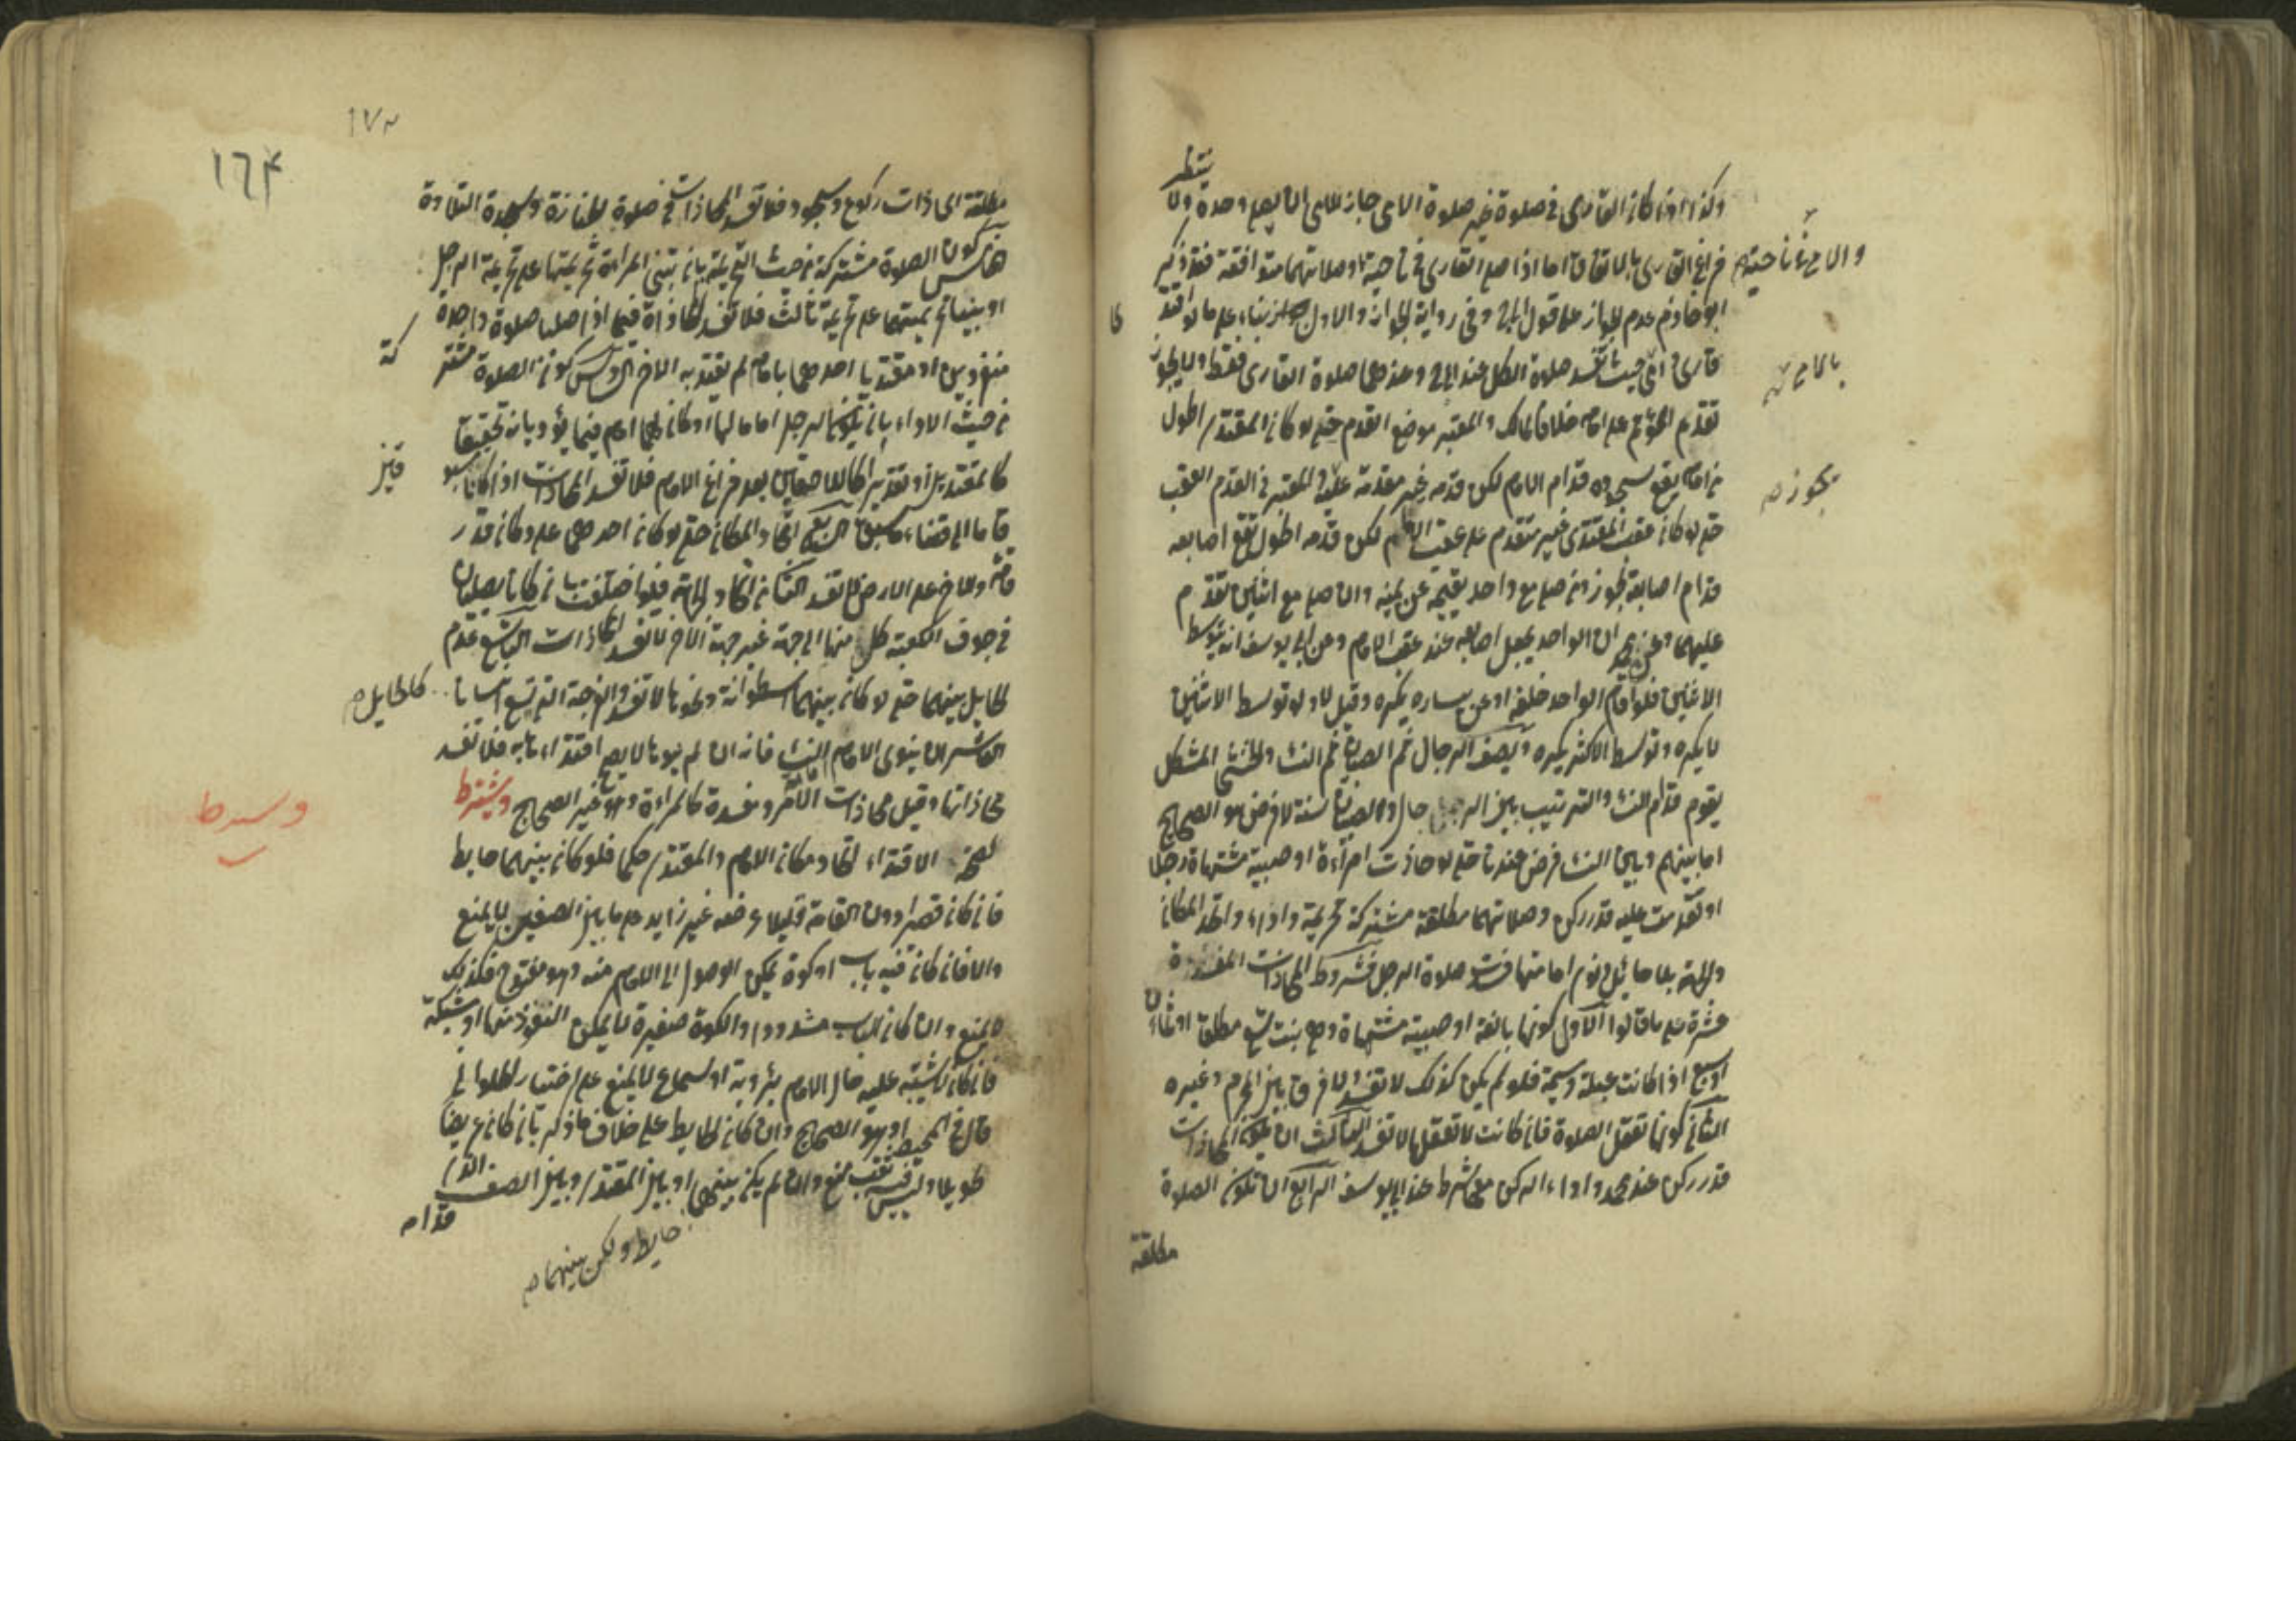 وكذا اذا كان القارى فى صلوة غير صلوة الامى جاز للامى ان يصلى وحده ولا
ينتظر
فراغ القارى بالاتفاق اما اذا صلى القارى فى ناحية وصلاتهما متوافقة فقد ذكر
والامى فى ناحية
ابو خازم عدم الجواز على قول ابى ح وفى رواية الجواز والاول بناء على ما لو اقتدى
قارئ امى حيث تفسد صلوة الكل عند ابى ح وعندهما صلوة القارى فقط ولا يجوز
تقديم المؤتم على امامه خلافا لمالك والمعتبر موضع القدم حتى لو كان المقتدى اطول
من امامه يقع سجوده قدام الامام لكن قدمه غير مقدمة عليه والمعتبر فى القدم العقب
يجوز
حتى لو كان عقب المقتدى غير متقدم على عقب الامام لكن قدمه اطول تقع اصابعه
قدام اصابعه يجوز ومن صلى مع واحد يقيمه عن يمينه وان صلى مع اثنين تقدم
عليهما وعن محمد ان الواحد يجعل اصابعه عند عقب الامام وعن ابى يوسف انه يتوسط
الاثنين فلو اقام الواحد خلفه او عن يساره يكره وقيل لا ولو توسط الاثنين
لا يكره وتوسط الاكثر يكره ويصف الرجال ثم الصبيان ثم النساء والخنثى المشكل
يقوم قدام النساء والترتيب بين الرجال والصبيان سنة لا فرض هو الصحيح
اما بينهم وبين النساء فرض عندنا حتى لو حاذت امرأة او صبية مشتهاة رجلا
او تقدمت عليه قدر ركن وصلاتهما مطلقة مشتركة تحريمة واداء واتحد المكان
والجهة بلا حائل ونوى امامتها فسدت صلوة الرجل فشروط المحاذات المفسدة
عشرة على ما قالوا الاول كونها بالغة او صبية مشتهاة وهى بنت تسع مطلقا او ثمان
او سبع اذا كانت عبلة وسيمة فلو لم يكن كذلك لا تفسد ولا فرق بين المحرم وغيره
الثانى كونها تعقل الصلوة فان كانت لا تعقلها لا تفسد الثالث ان تكون المحاذات
قدر ركن عند محمد واداء الركن معها شرط عند ابى يوسف الرابع ان تكون الصلوة
مطلقة
١٧٣
١٦٤
مطلقة اى ذات ركوع وسجود فلا تفسد المحاذات فى صلوة الجنازة وسجدة التلاوة
الخامس كون الصلوة مشتركة من حيث التحريمة بان تبنى المرأة تحريمتها على تحريمة الرجل
او بنيا تحريمتهما على تحريمة ثالث فلا تفسد المحاذاة فيما اذا صليا صلوة واحدة
منفردين او مقتديا احدهما بامام لم يقتد به الاخر السادس كون الصلوة مشتركة
من حيث الاداء بان يكون الرجل اماما لها او كان لهما امام فيما يؤديانه تحقيقا
كالمقتديين او تقديرا كاللاحقين بعد فراغ الامام فلا تفسد المحاذات اذا كانا مسبوقين
قاما الى قضاء ما سبقا السابع اتحاد المكان حتى لو كان احدهما على دكان قدر
قامة والاخر على الارض لا تفسد الثامن اتحاد الجهة فلو اختلفت بان كانا يصليان
فى جوف الكعبة كل منهما الى جهة غير جهة الاخر لا تفسد المحاذات التاسع عدم
الحايل بينهما حتى لو كان بينهما اسطوانة ونحوها لا تفسد والفرجة التى تسع انسانا كالحايل
العاشر ان ينوى الامام النساء فانه ان لم ينوها لا يصح اقتداءها به فلا تفسد
محاذاتها وقيل محاذات الامرد مفسدة كالمرأة وهو غير الصحيح ويشترط
لصحة الاقتداء اتحاد مكان الامام والمقتدى حكما فلو كان بينهما حايط
فان كان قصيرا دون القامة قليلا عرضه غير زايد على ما بين الصفين لا يمنع
والا فان كان فيه باب او كوة يمكن الوصول الى الامام منه وهو مفتوح فكذلك
لا يمنع وان كان الباب مشدودا والكوة صغيرة لا يمكن النفوذ منها او شبكة
فان كان لا يشتبه عليه حال الامام برؤية او سماع لا يمنع على اختيار الحلوانى
قال فى المحيط وهو الصحيح وان كان الحايط على خلاف ما ذكر بان كان عريضا
طويلا وليس فيه ثقب منع وان لم يكن بينهما او بين المقتدى وبين الصف الذى
حايط ولكن بينهما
قدامه